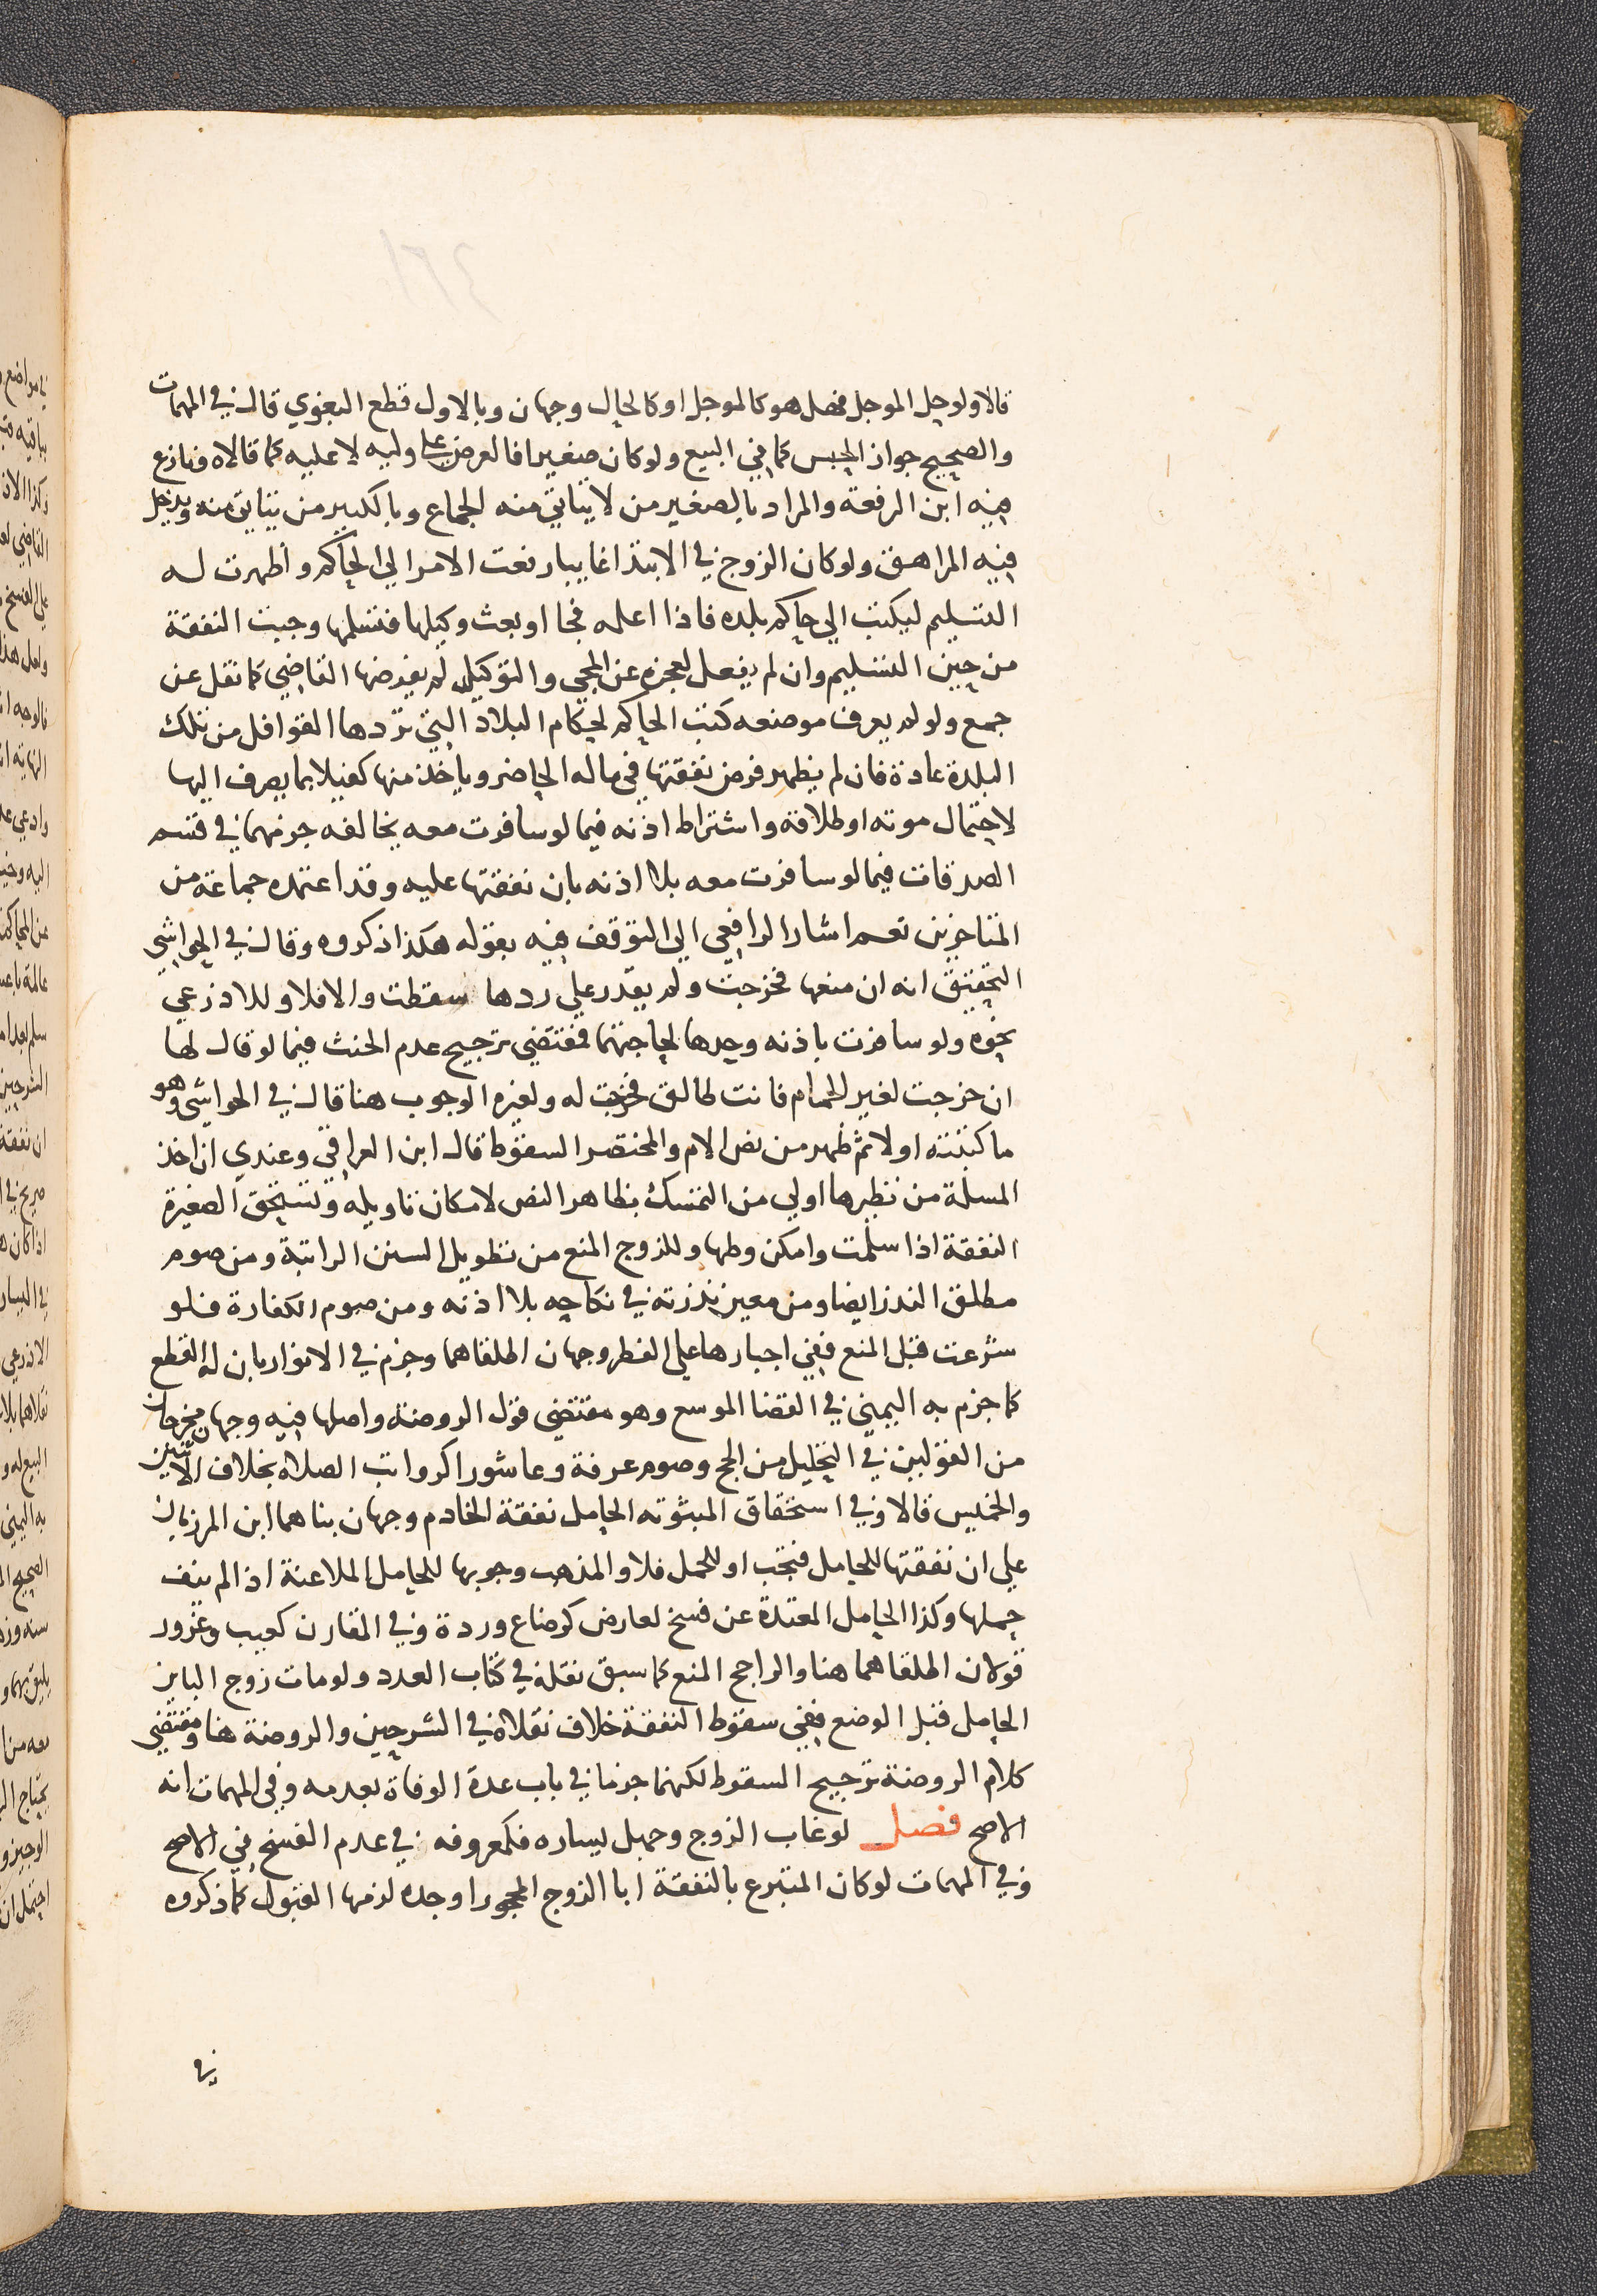 قالا ولو حل الموجل فهل هو كالموجل او كالحال وجهان وبالاول قطع البغوي قال في المهمات
والصحيح جواز الحبس كما في البيع ولو كان صغيرا فالعرض على وليه لا عليه كما قالاه ونازع
فيه ابن الرفعة والمراد بالصغير من لا يتاتي منه الجماع وبالكبير من يتاتي منه ويدخل
فيه المراهق ولو كان الزوج في الابتدا غايبا رفعت الامر الي الحاكم واظهرت له
التسليم ليكتب الي حاكم بلده فاذا اعلمه فجا او بعث وكيلها فتسلمها وجبت النفقة
من حين التسليم وان لم يفعل لعجزه عن المجي والتوكيل لم يفرضها القاضي كما نقل عن
جمع ولو لم يعرف موضعه كتب الحاكم لحكام البلاد التي تردها القوافل من تلك
البلدة عادة فان لم يظهر فرض نفقتها في ماله الحاضر وياخذ منها كفيلا بما يصرف اليها
لاحتمال موته او طلاقه واشتراط اذنه فيما لو سافرت معه يخالفه جزمهما في قسم
الصدقات فيما لو سافرت معه بلا اذنه بان نفقتها عليه وقد اعتمده جماعة من
المتاخرين نعم اشار الرافعي الي التوقف فيه بقوله هكذا ذكروه وقال في الحواشي
التحقيق انه ان منعها فخرجت ولم يقدر علي ردها سقطت والا فلا وللاذرعي
نحوه ولو سافرت باذنه وحدها لحاجتهما فمقتضي ترجيح عدم الحنث فيما لو قال لها
ان خرجت لغير الحمام فانت طالق فخرجت له ولغيره الوجوب هنا قال في الحواشي وهو
ما كتبته اولا ثم ظهر من نص الام والمختصر السقوط قال ابن العراقي وعندي ان اخذ
المسلة من نظيرها اولي من التمسك بظاهر النص لامكان تاويله وتستحق الصغيرة
النفقة اذا سلمت وامكن وطيها وللزوج المنع من تطويل السنن الراتبة ومن صوم
مطلق النذر ايضا ومن معين نذرته في نكاحه بلا اذنه ومن صوم الكفارة فلو
شرعت قبل المنع ففي اجبارها علي الفطر وجهان اطلقاهما وجزم في الانوار بان له القطع
كما جزم به اليمني في القضا الموسع وهو مقتضي قول الروضة واصلها فيه وجهان مخرجان
من القولين في التحليل من الحج وصوم عرفة وعاشورا كرواتب الصلاة بخلاف الاثنين
والخميس قالا وفي استحقاق المبتوته الحامل نفقة الخادم وجهان بناهما ابن المرزبان
علي ان نفقتها للحامل فتجب او للحمل فلا والمذهب وجوبها للحامل الملاعنة اذا لم ينف
حملها وكذا الحامل المعتدة عن فسخ لعارض كرضاع وردة وفي المقارن كعيب وغرور
قولان اطلقاهما هنا والراجح المنع كما سبق نقله في كتاب العدد ولو مات زوج الباين
الحامل قبل الوضع ففي سقوط النفقة خلاف نقلاه في الشرحين والروضة هنا ومقتضي
كلام الروضة ترجيح السقوط لكنهما جزما في باب عدة الوفاة بعدمه وفي المهمات انه
الاصح فصل لو غاب الزوج وجهل يساره فكمعروفه في عدم الفسخ في الاصح
وفي المهمات لو كان المتبرع بالنفقة ابا الزوج المحجور او جده لزمها القبول كما ذكروه
في